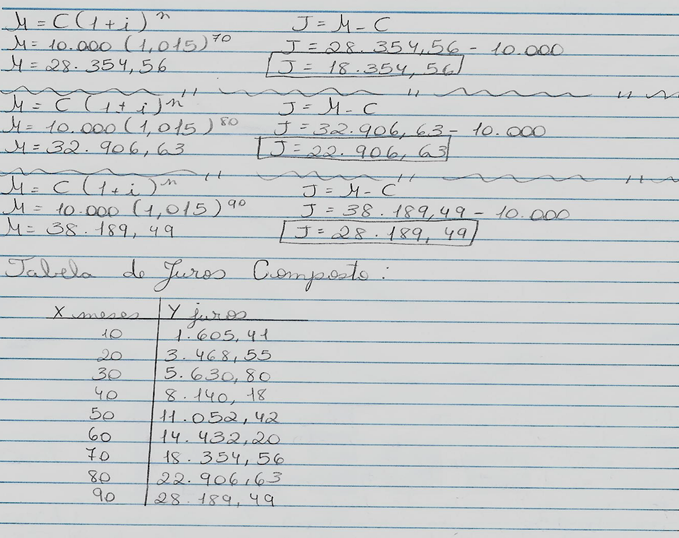 M = C (1 + i)^n J = M - C
M = 10.000 (1,015)^70 J = 28.354,56 - 10.000
M = 28.354,56 J = 18.354,56
M = C (1 + i)^n J = M - C
M = 10.000 (1,015)^80 J = 32.906,63 - 10.000
M = 32.906,63 J = 22.906,63
M = C (1 + i)^n J = M - C
M = 10.000 (1,015)^90 J = 38.189,49 - 10.000
M = 38.189,49 J = 28.189,49
Tabela de Juros Composto:
X meses Y juros
10 1.605,41
20 3.468,55
30 5.630,80
40 8.140,18
50 11.052,42
60 14.432,20
70 18.354,56
80 22.906,63
90 28.189,49